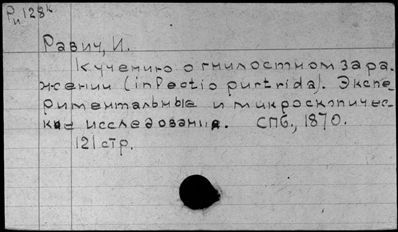 Рц 1284
Равич, И.
К учению о гнилостном зара-
жении (infectio purtrida). Экспе-
риментальные и микроскопичес-
кие исследования. СПб., 1870.
121 стр.